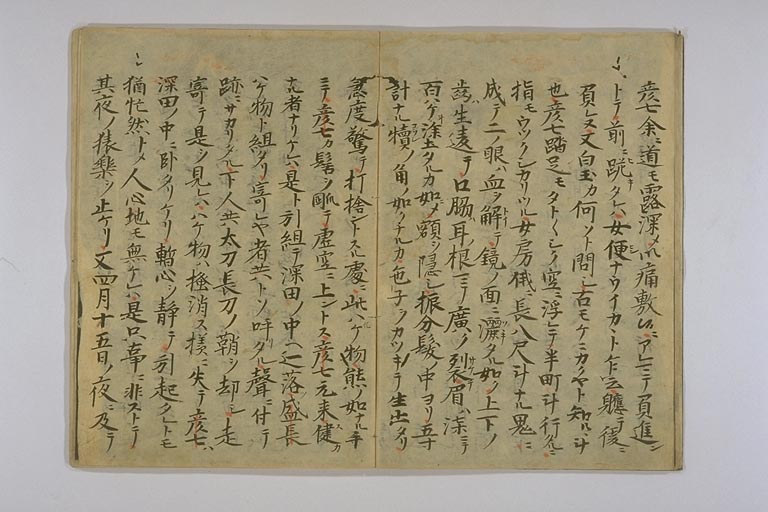 彦七余ニ道モ露深メレハ痛敷候ニアレマテ負進シ
トテ前ニ跪タレハ女便ナウイカントト乍云軈テ後ニ
負レヌ又白玉カ何ソト問シ古モケニカクヤト知ルヽ計
也彦七踏足モタト〱シク空ニ浮レテ半町計行タルニ
指モウツクシカリツル女房俄ニ長八尺計ナル鬼ニ
成テ二ノ眼ハ血ヲ解テ鏡ノ面ニ灑タル如ク上下ノ
歯生違テ口脇耳根マテ廣ク裂眉ハ漆ニテ
百ハケ塗タルカ如メ額ヲ隠シ振分髪ノ中ヨリ五寸
計ナル犢ノ角ノ如クナルカ色子ヲカツキテ生出タリ
急度驚テ打捨ントスル處ニ此ハケ物熊ノ如ナル手
ニテ彦七カ髻ヲ䰗テ虚空ニ上ントス彦七元来健カ
ナル者ナリケレハ是ト引組テ深田ノ中ヘ辷落盛長
ハケ物ト組タリ寄レヤ者共トソ呼タル聲ニ付テ
跡ニサカリタル下人共太刀長刀ノ鞘ヲ却シ走
寄テ是ヲ見レハハケ物ハ掻消ス様ニ失テ彦七ハ
深田ノ中ニ臥タリケリ暫心ヲ静テ引起タレトモ
猶忙然トメ人心地モ無ケレハ是只事ニ非ストテ
其夜ノ猿樂ヲ止ケリ又四月十五日ノ夜ニ及テ